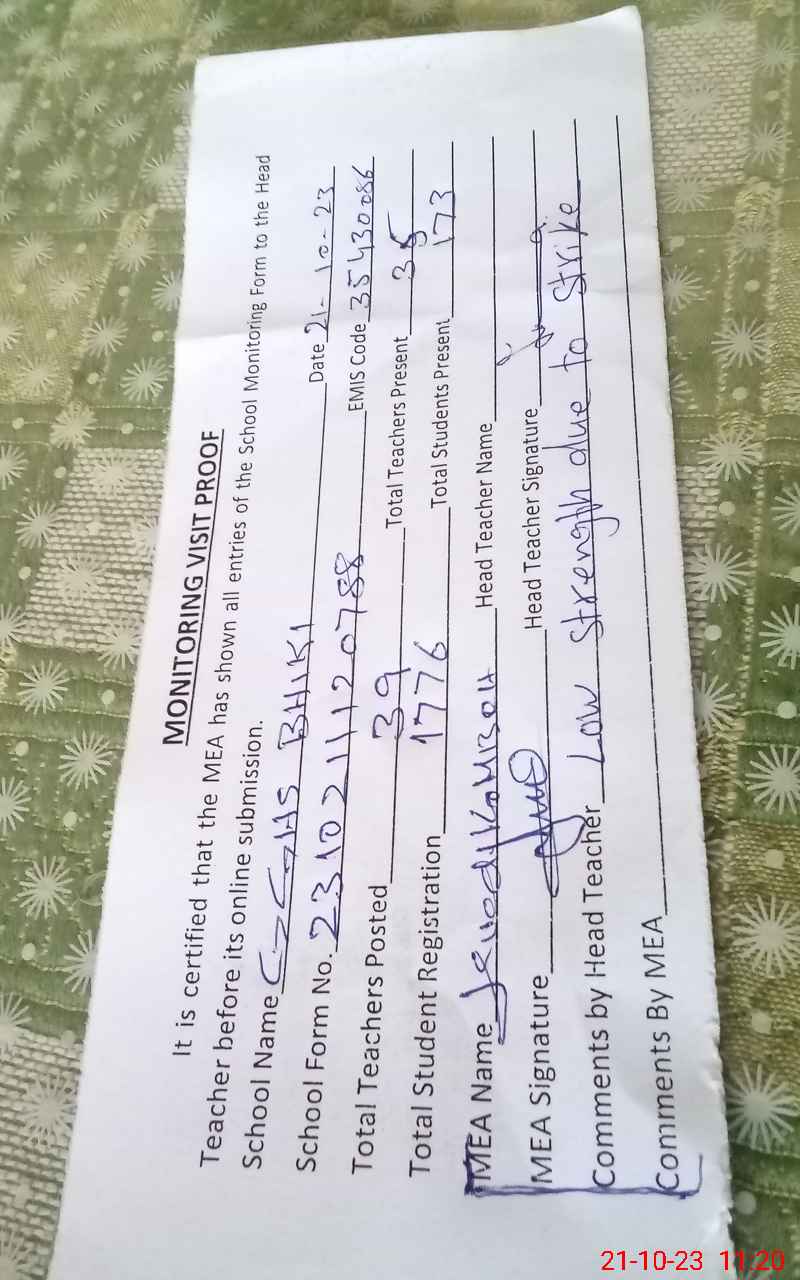 MONITORING VISIT PROOF
It is certified that the MEA has shown all entries of the School Monitoring Form to the Head
Teacher before its online submission.
School Name GGHS BHIKI Date 21-10-23
School Form No. 23102111120788 EMIS Code 35430086
Total Teachers Posted 39 Total Teachers Present 35
Total Student Registration 1776 Total Students Present 173
MEA Name Head Teacher Name
MEA Signature Head Teacher Signature
Comments by Head Teacher Low strength due to strike
Comments By MEA
21-10-23 11:20